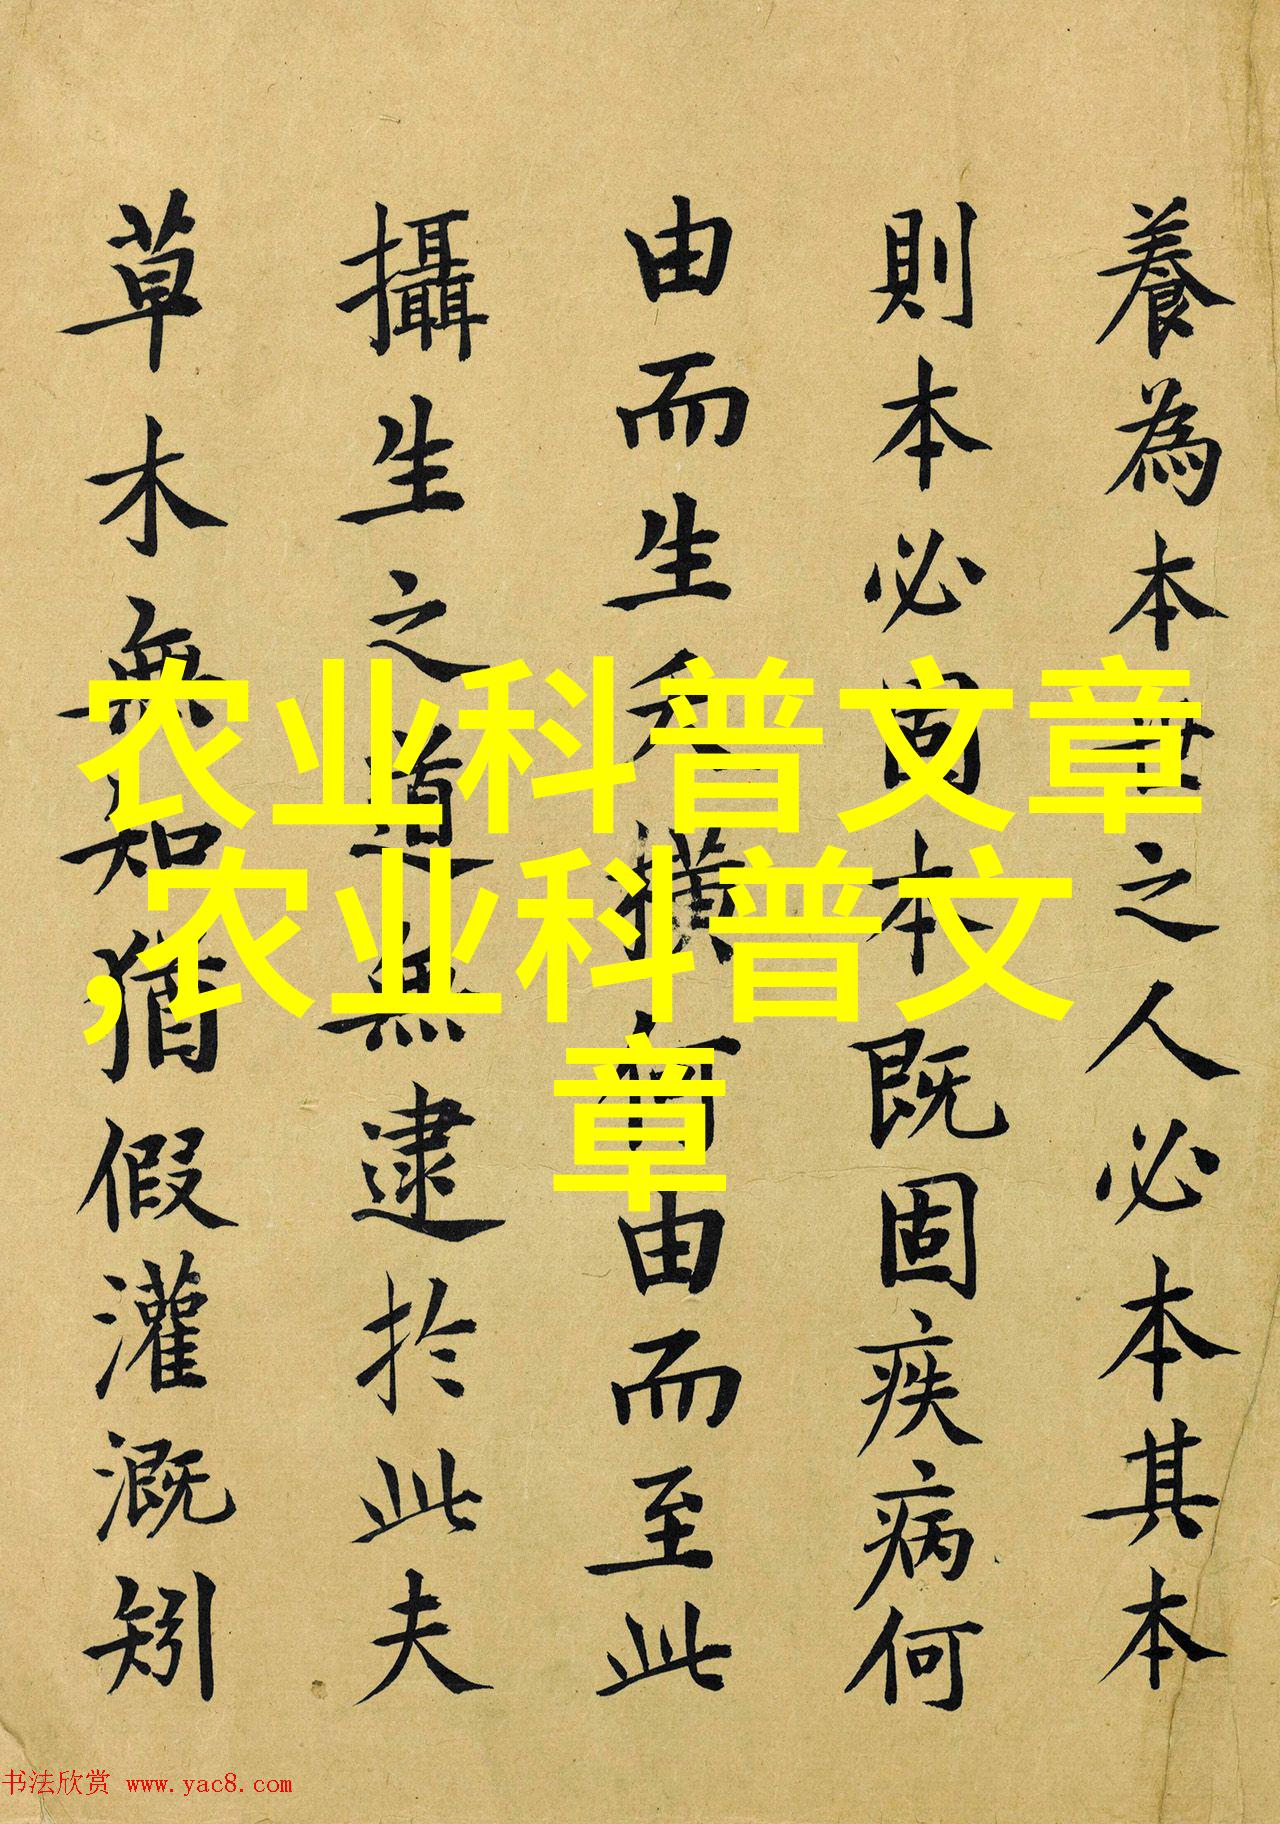 養為本世之人必本其本
則本必固本既固疾病何
由而生夭橫何由而至此
攝生之道無逮於此夫
草木無知猶假灌溉矧
农业科普文章
,农业科普文
章
书法欣赏 www.yac8.com